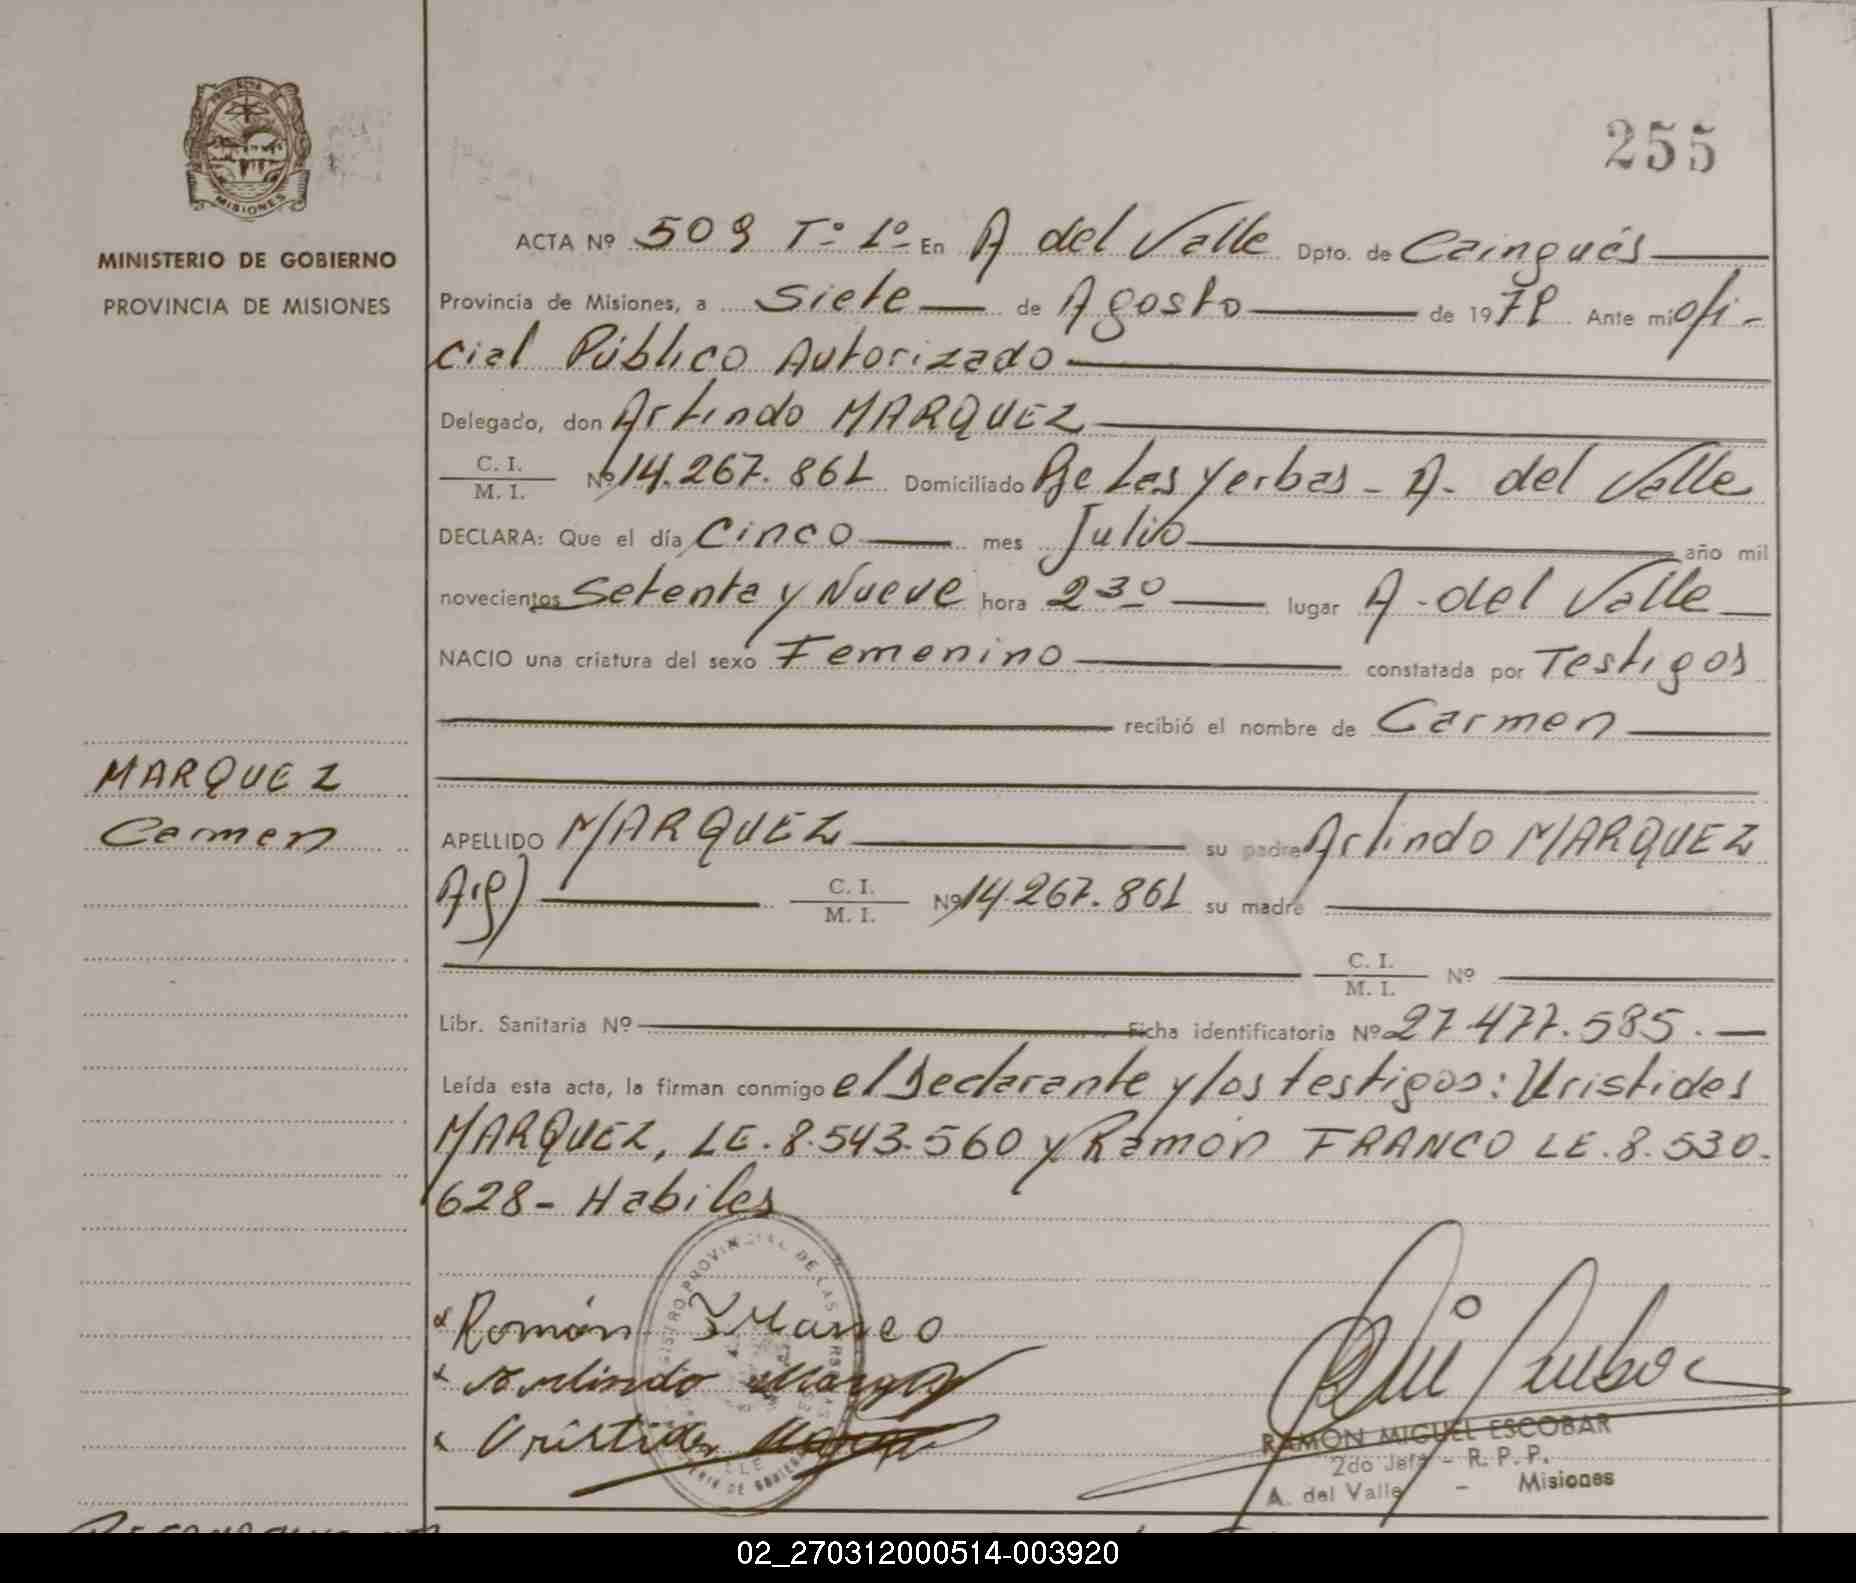 255
MISIONES
MINISTERIO DE GOBIERNO
PROVINCIA DE MISIONES
ACTA Nº 509 Tº 1º En A del Valle Dpto. de Cainguás
Provincia de Misiones, a Siete de Agosto de 1979 Ante mi ofi-
cial Público Autorizado
Delegado, don Arlindo MARQUEZ
C. I.
M. I. Nº 14.267.861 Domiciliado Pje Las Yerbas - A. del Valle
DECLARA: Que el día Cinco mes Julio año mil
novecientos Setenta y Nueve hora 2 30 lugar A. del Valle
NACIO una criatura del sexo Femenino constatada por Testigos
recibió el nombre de Carmen
MARQUEZ
Carmen
APELLIDO MARQUEZ su padre Arlindo MARQUEZ
Arg) C. I.
M. I. Nº 14.267.861 su madre
C. I.
M. I. Nº
Libr. Sanitaria Nº Ficha identificatoria Nº 27.477.585.
Leída esta acta, la firman conmigo el Declarante y los testigos: Uristides
MARQUEZ, LE. 8.543.560 y Ramón FRANCO LE. 8.530.
628 - Habiles
Román Franco
Arlindo
Uristides
RAMON MIGUEL ESCOBAR
2do Jefe - R. P. P.
A. del Valle - Misiones
02_270312000514-003920